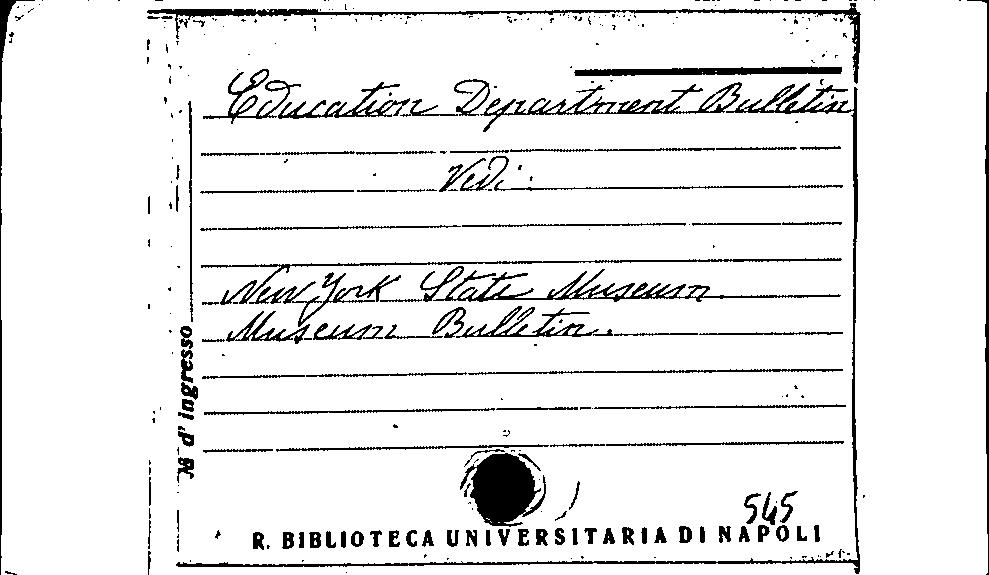 Education Department Bulletin
Vedi:
New York State Museum.
Museum Bulletin.
№ d'ingresso
545
R. BIBLIOTECA UNIVERSITARIA DI NAPOLI